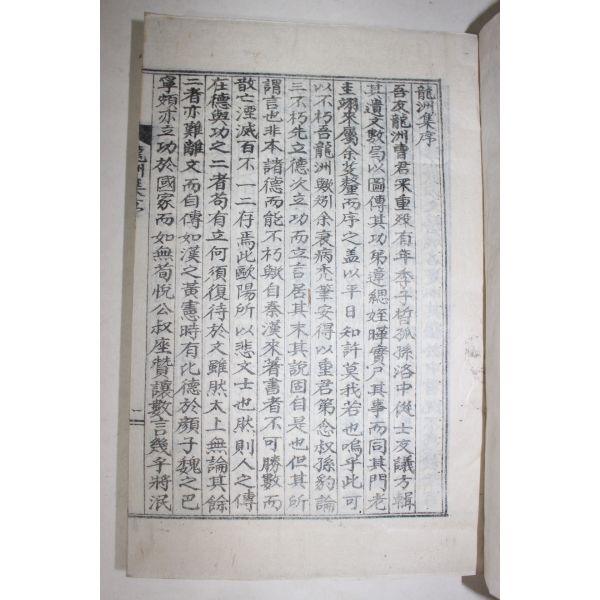 龍洲集序
吾友龍洲曺君采重歿有年季子哲孤孫洛中從士友議方輯
其遺文數局以圖傳其功弟遠緦姪暉實尸其事而同其門老
圭翊來屬余芟鳌而序之盖以平日知許莫我若也嗚乎此可
以不朽吾龍洲歟矧余衰病禿筆安得以重君第念叔孫豹論
三不朽先立德次立功而立言居其末其說固自是也但其所
謂言也非本諸德而能不朽歟自秦漢來著書者不可勝數而
散亡湮滅百不一二存焉此歐陽所以悲文士也然則人之傳
在德與功之二者苟有立何須復待於文雖然太上無論其餘
二者亦難離文而自傳如漢之黃憲時有比德於顏子魏之巴
寧頗亦立功於國家而如無荀悅公叔座贊讓數言幾乎將泯
龍洲集序
一